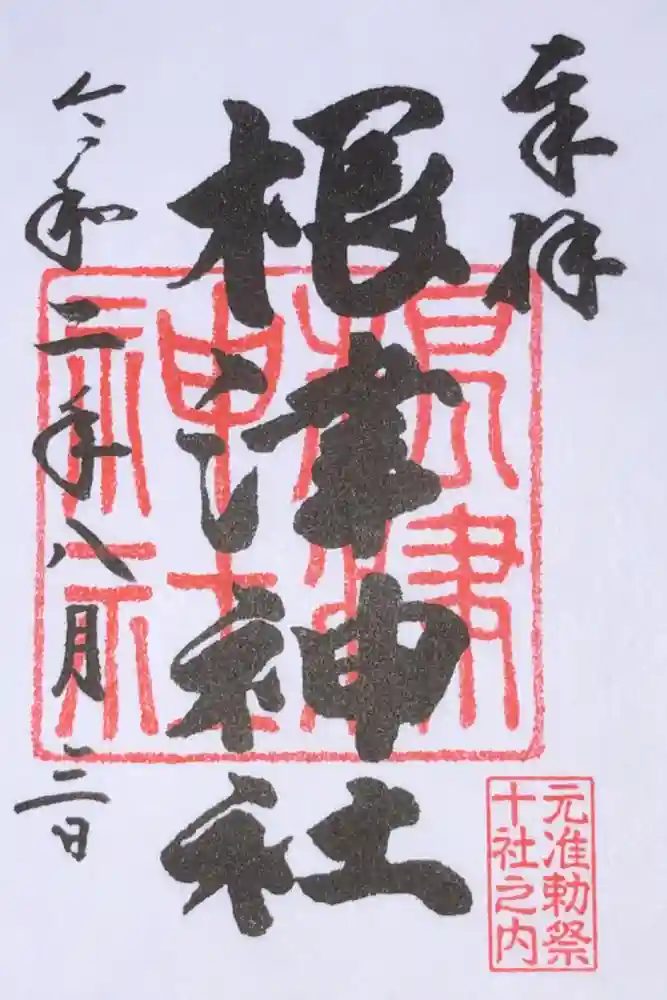 奉拝
根津神社
令和二年八月二日
根津神社
元准勅祭
十社之内